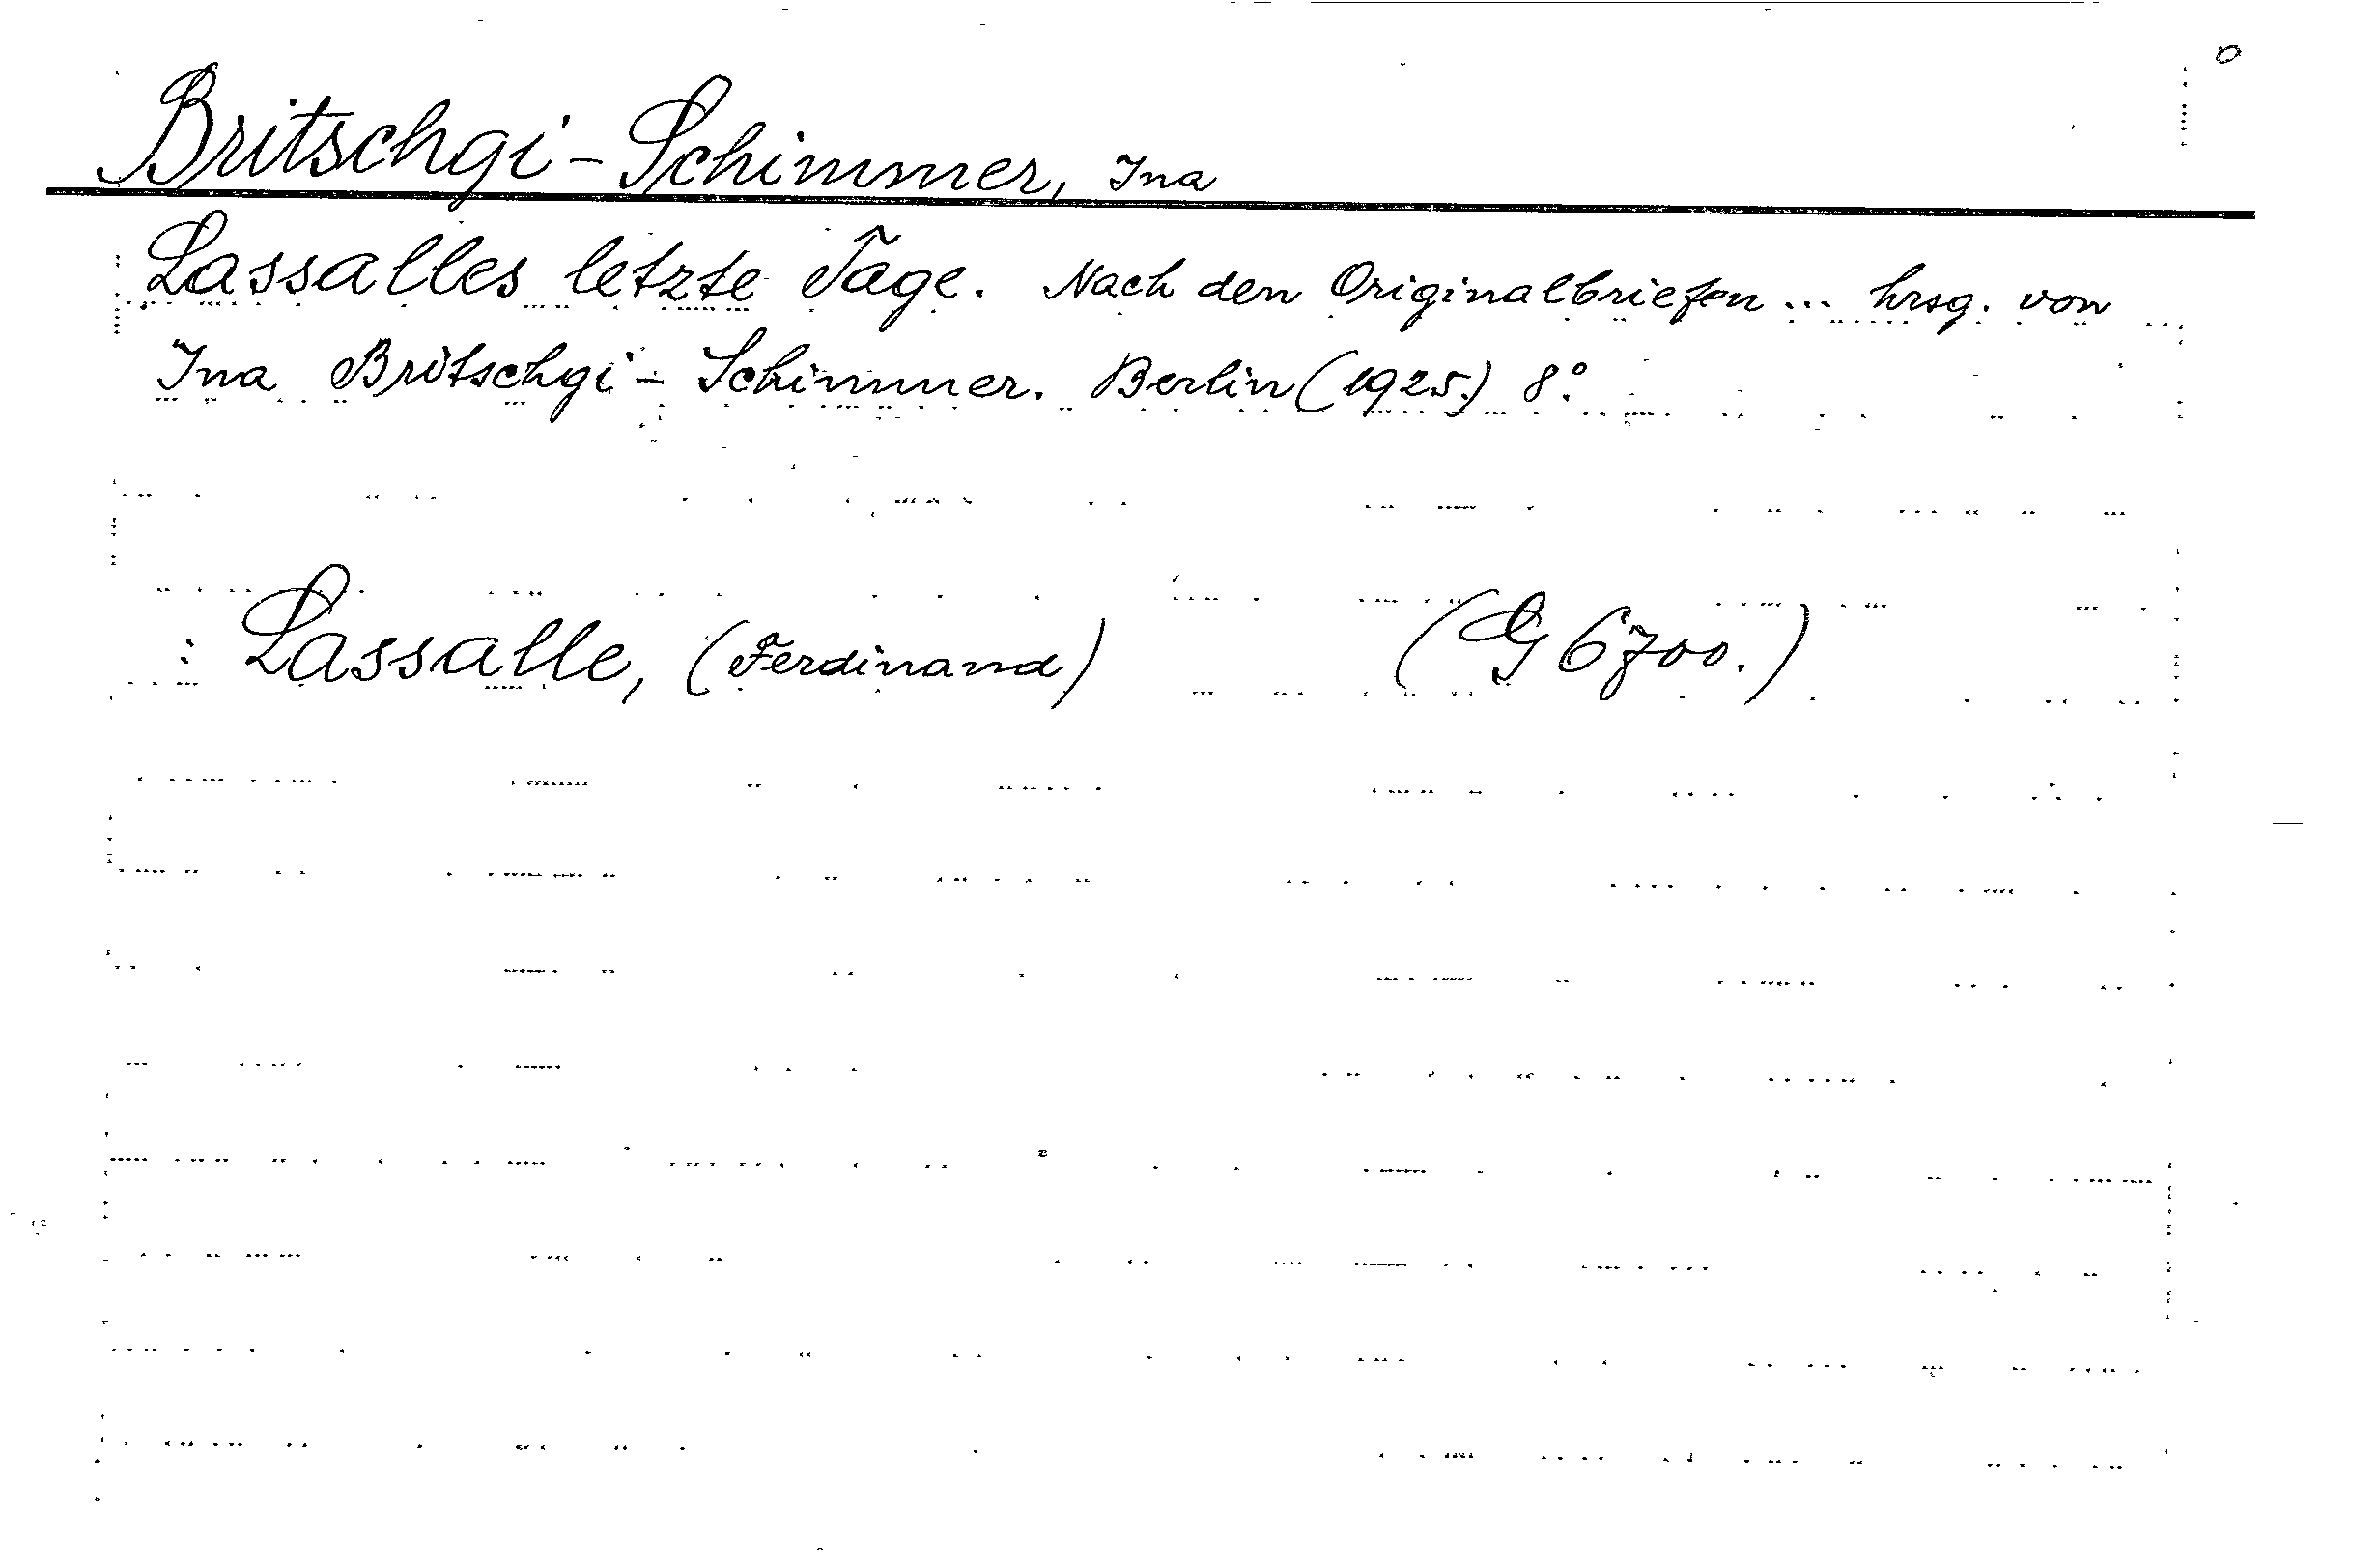 Britschgi-Schimmer, Ina
Lassalles letzte Tage. Nach den Originalbriefen ... hrsg. von
Ina Britschgi-Schimmer. Berlin (1925.) 8°.
Lassalle, (Ferdinand) (G 6700.)